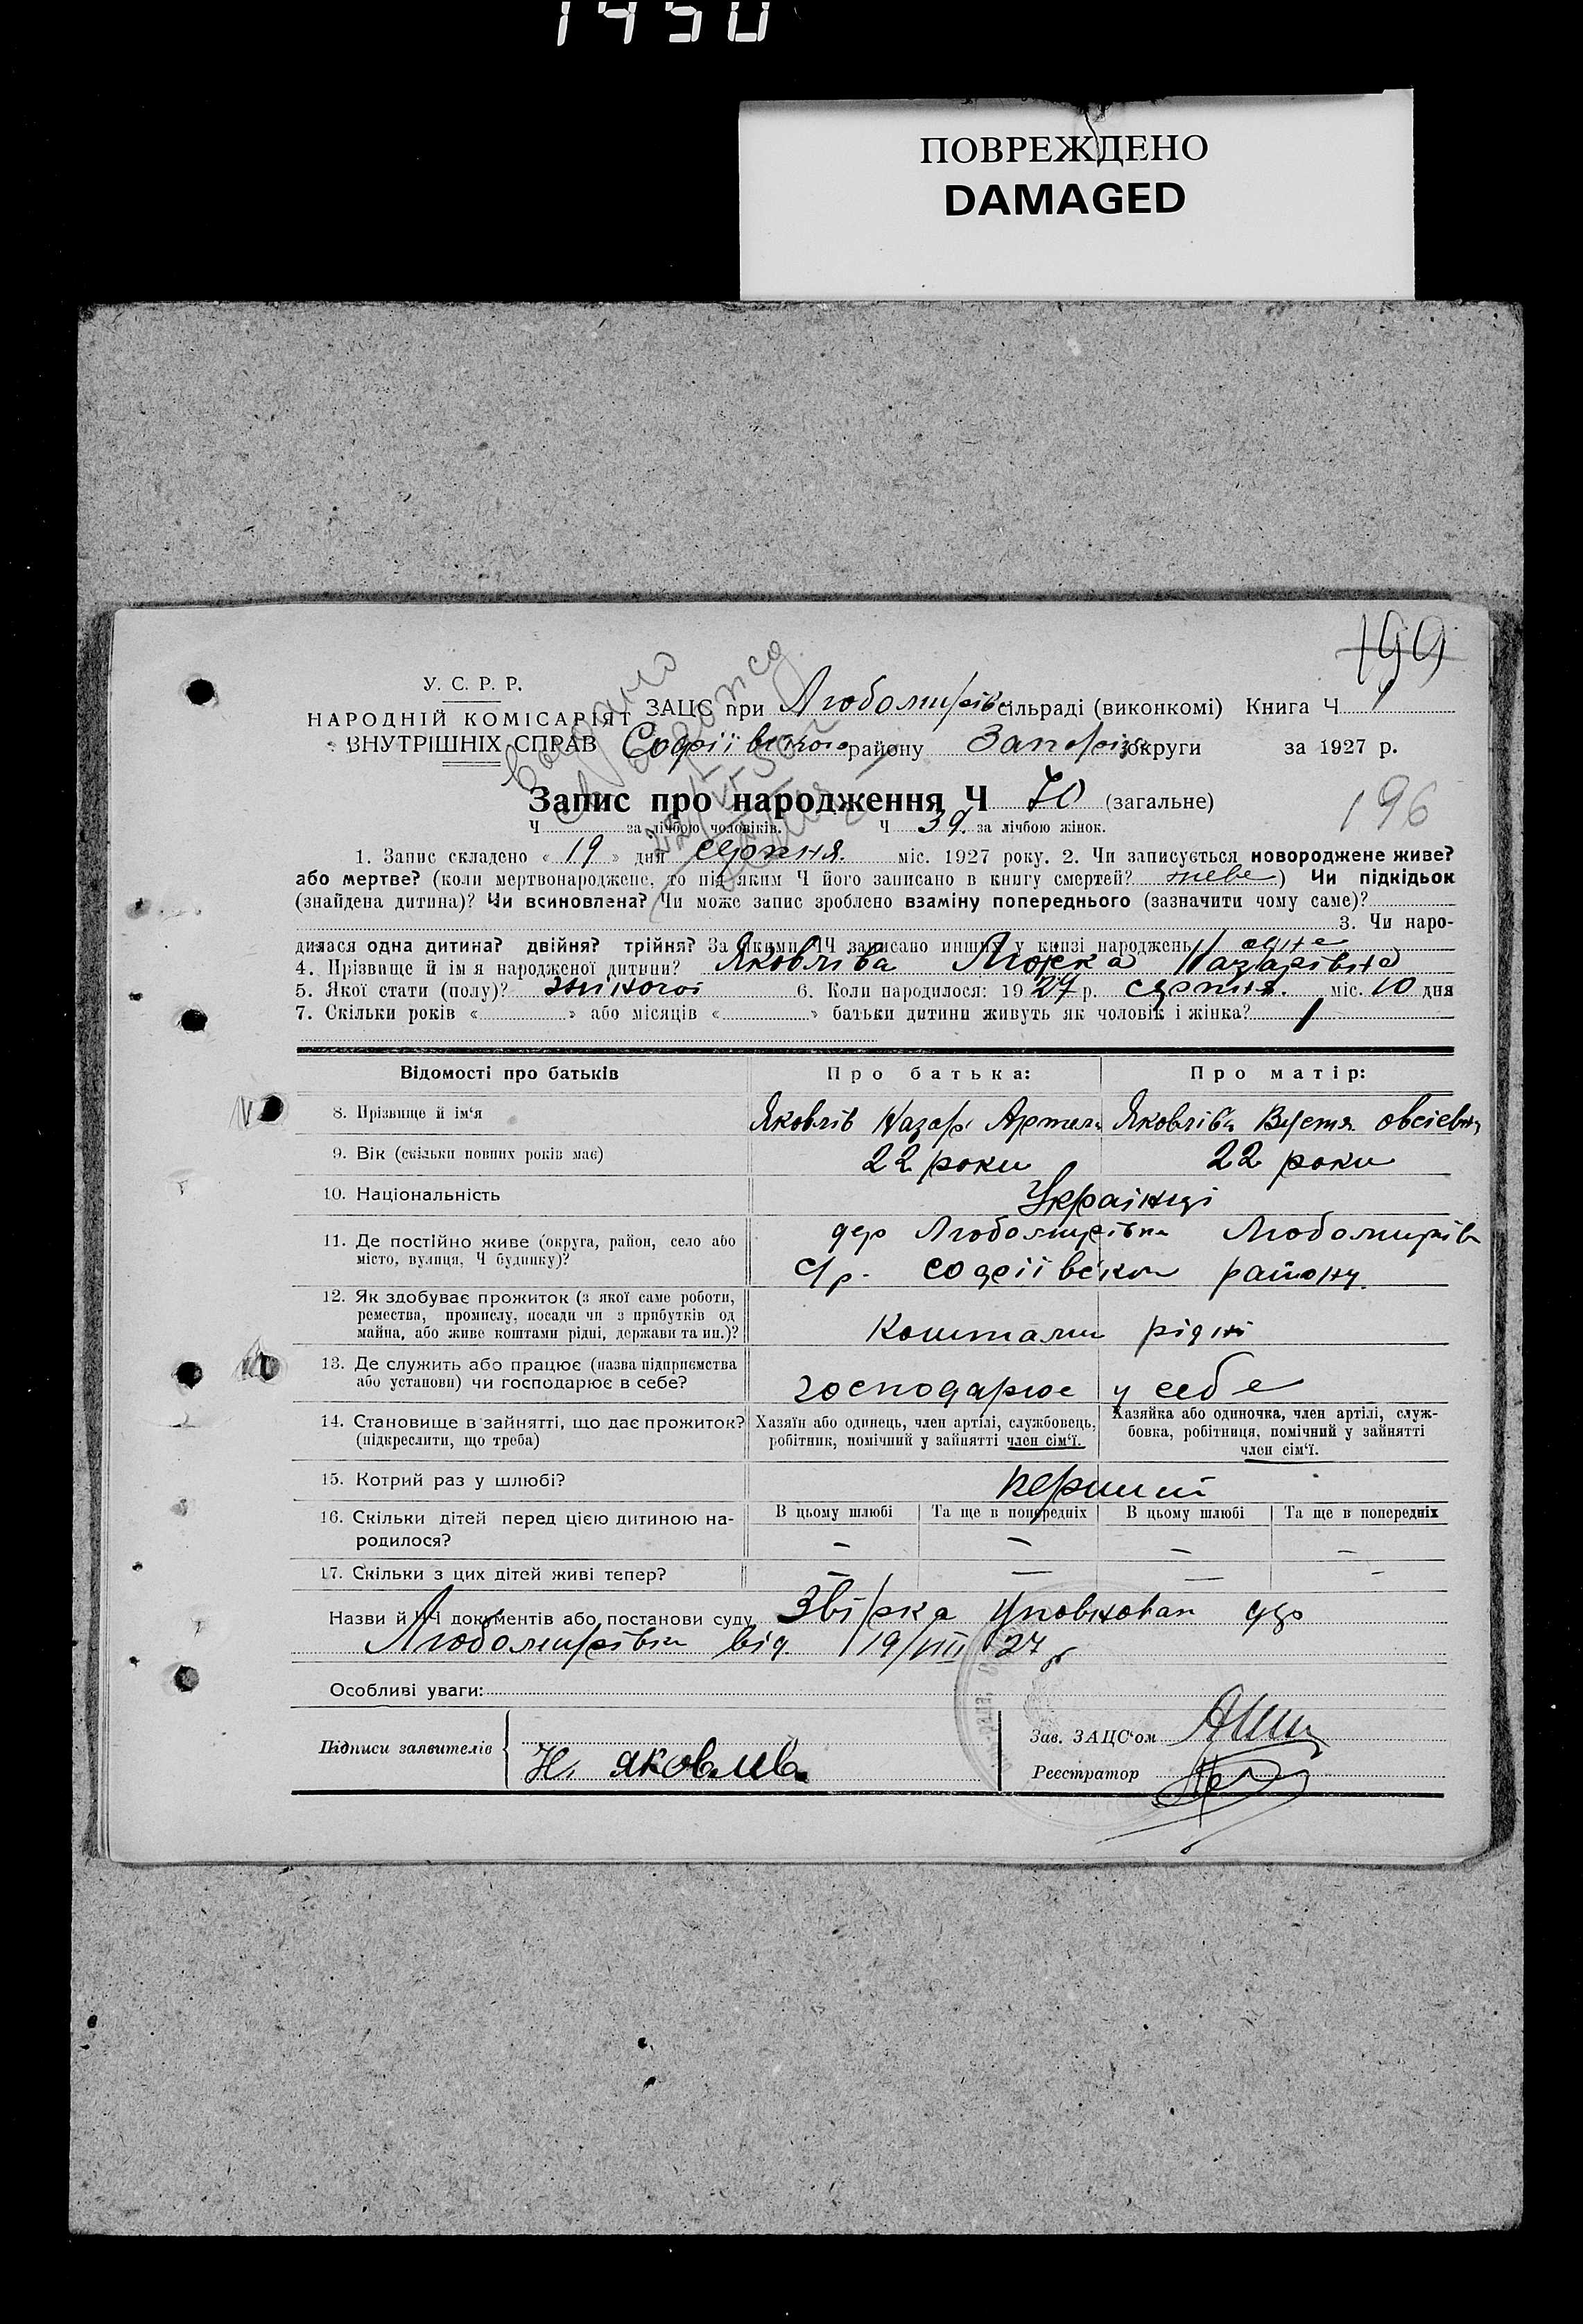 1450
ПОВРЕЖДЕНО
DAMAGED
199
У. С. Р. Р.
НАРОДНІЙ КОМІСАРІЯТ
ВНУТРІШНІХ СПРАВ
ЗАЦС при Любомирів сільраді (виконкомі) Книга Ч 1
Софіівского району Запоріз округи за 1927 р.
Запис про народження Ч 70 (загальне)
196
Ч за лічбою чоловіків. Ч 39. за лічбою жінок.
1. Запис складено « 19 » дня серпня. міс. 1927 року. 2. Чи записується новороджене живе?
або мертве? (коли мертвонароджене, то під яким Ч його записано в книгу смертей? живе) Чи підкідьок
(знайдена дитина)? Чи всиновлена? Чи може запис зроблено взаміну попереднього (зазначити чому саме)?
3. Чи наро-
дилася одна дитина? двійня? трійня? За якими ЧЧ записано инших у книзі народжень одне
4. Прізвище й ім я народженої дитини? Яковліва Люжка Назарівна
5. Якої стати (полу)? жіночоі 6. Коли народилося: 1927 р. серпня. міс. 10 дня
7. Скільки років « » або місяців « » батьки дитини живуть як чоловік і жінка? 1
Відомості про батьків Про батька: Про матір:
8. Прізвище й ім‘я Яковлів Назар Артем Яковліва Вустя овсіевна
9. Вік (скільки повних років має) 22 роки 22 роки
10. Національність Українці
11. Де постійно живе (округа, район, село або
місто, вулиця, Ч будинку)?
дер Любомирівка Любомирів
С/р. софіівского району
12. Як здобуває прожиток (з якої саме роботи,
ремества, промислу, посади чи з прибутків од
майна, або живе коштами рідні, держави та ин.)?
Коштами рідні
13. Де служить або працює (назва підприємства
або установи) чи господарює в себе?
господарює у себе
14. Становище в зайнятті, що дає прожиток?
(підкреслити, що треба)
Хазяїн або одинець, член артілі, службовець,
робітник, помічний у зайнятті член сім‘ї.
Хазяйка або одиночка, член артілі, служ-
бовка, робітниця, помічний у зайнятті
член сім‘ї.
15. Котрий раз у шлюбі? перший
16. Скільки дітей перед цією дитиною на-
родилося?
В цьому шлюбі Та ще в попередніх В цьому шлюбі Та ще в попередніх
– – – –
17. Скільки з цих дітей живі тепер? – – – –
Назви й ЧЧ документів або постанови суду Звірка уповноваж дер
Любомирівки від 19/VIII 27 р
Особливі уваги:
Підписи заявителів Н. яковлів
Зав. ЗАЦС‘ом
Реєстратор